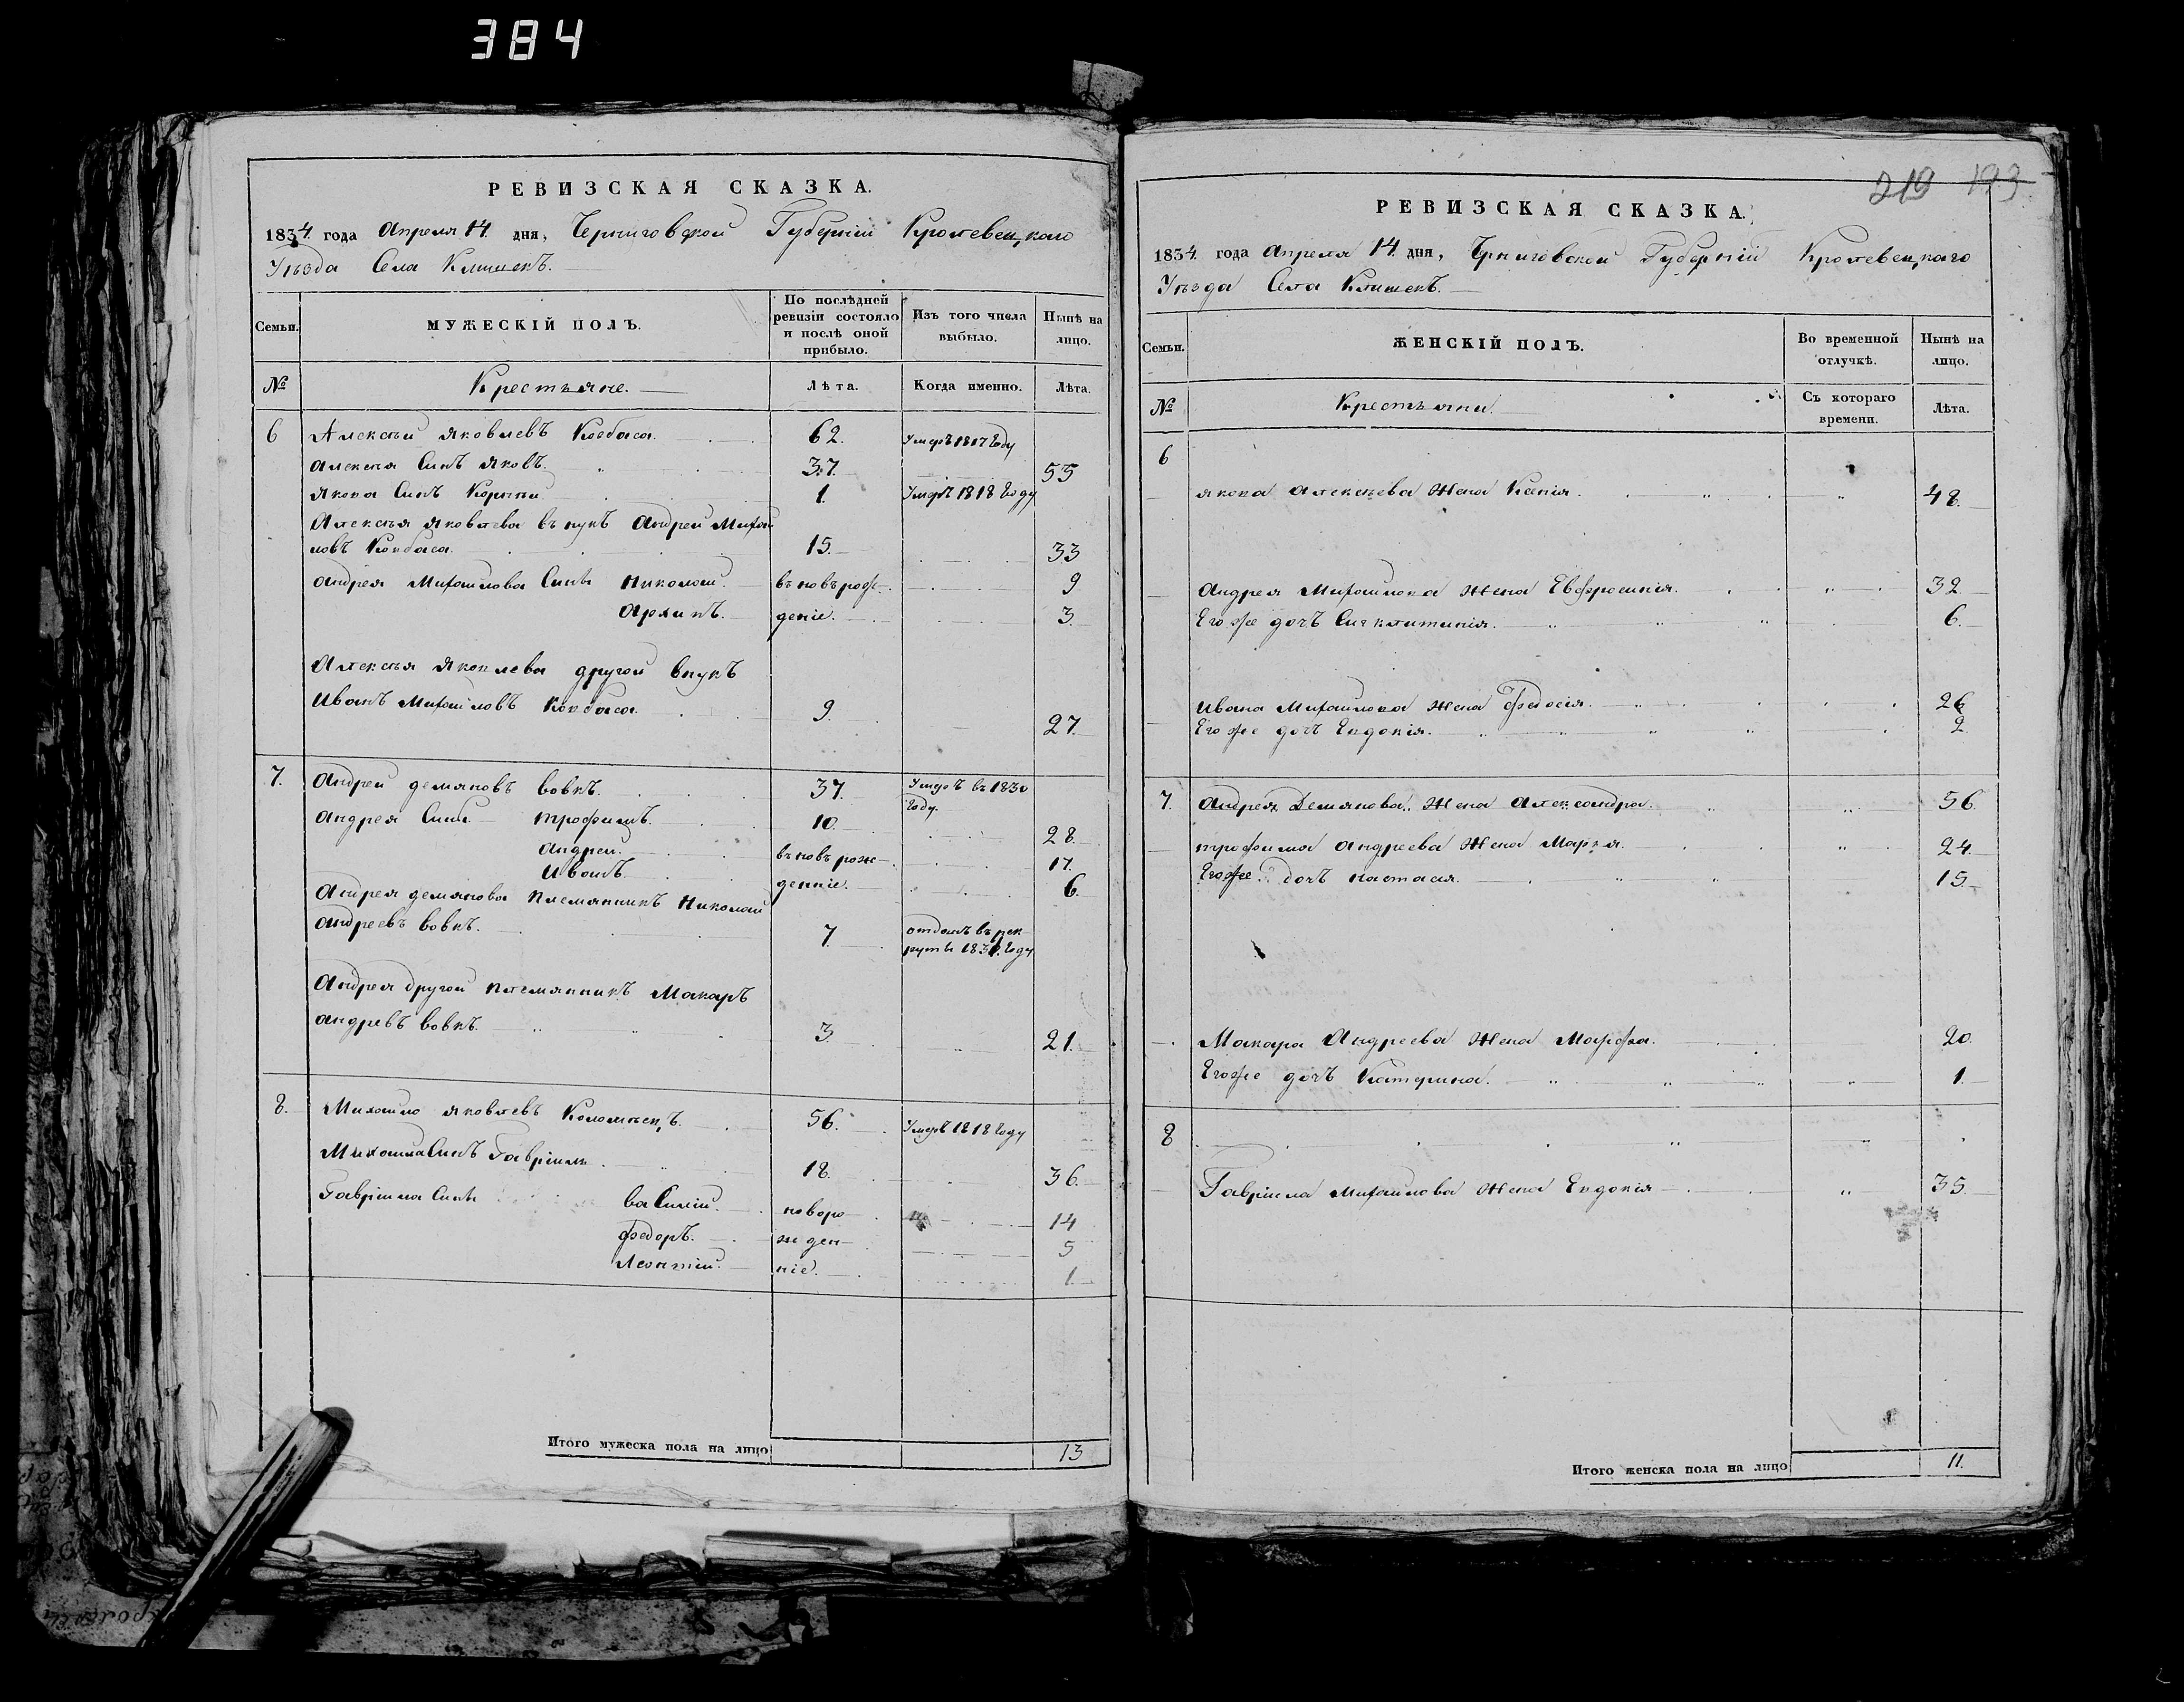 384
РЕВИЗСКАЯ СКАЗКА.
1834. года Апреля 14. дня, Черниговской Губерніи Кролевецкаго
Уѣзда Села Клишекъ.
Семьи.
МУЖЕСКІЙ ПОЛЪ.
По послѣдней ревизіи состояло и послѣ оной прибыло.
Изъ того числа выбыло.
Нынѣ на лицо.
№
Крестьяне.
Лѣта.
Когда именно.
Лѣта.
6 Алексѣй яковлевъ Ковбаса. 62. Умеръ 1817 Году
Алексея Синъ яковъ. 37. 55
якова Синъ Корнѣй 1. Умеръ 1818 Году
Алексѣя яковлева внукъ Андрей Михай
ловъ Ковбаса. 15. 33
Андрея Михайлова Сины Николай. въновърож- 9
Архипъ. деніе. 3.
Алексѣя Яковлева другой внукъ
Иванъ Михайловъ Ковбаса. 9. 27.
7. Андрей демяновъ вовкъ. 37. Умеръ въ 1830
Году.
Андрея Сины трофимъ. 10. 28.
Андрей. въновърож- 17.
Иванъ. денніе. 6.
Андрея демянова племянникъ Николай
Андреевъ вовкъ. 7. отданъ върек-
руты 1831. Году
Андрея другой племянникъ Макаръ
андревъ вовкъ. 3. 21.
8. Михайло яковлевъ Коломѣецъ. 56. Умеръ 1818 Году
Михайла Синъ Гавріилъ. 18. 36.
Гавріила Сины ваСилій. новоро 14
федоръ. жден- 5
Леонтій. ніе. 1.
Итого мужеска пола на лицо 13
219 193
РЕВИЗСКАЯ СКАЗКА.
1834. года Апреля 14. дня, Чрниговской Губерніи Кролевецкаго
Уѣзда Села Клишекъ.
Семьи.
ЖЕНСКІЙ ПОЛЪ.
Во временной отлучкѣ.
Нынѣ на лицо.
№
Крестьяни.
Съ котораго времени.
Лѣта.
6
якова алексѣева Жена Ксенія. 48.
Андрея Михайлова Жена Евфросинія. 32.
Егоже дочъ Синклитикія. 6.
Ивана Михайлова Жена Федосія. 26
Егоже дочъ Евдокія. 2
7. Андрея Демянова Жена Александра. 56.
трофима андреева Жена Марія. 24.
Егоже дочъ настасія. 15.
Макара Андреева Жена Марфа. 20.
Егоже дочъ Катерина. 1.
8
Гавріила Михайлова Жена Евдокія 35.
Итого женска пола на лицо 11.